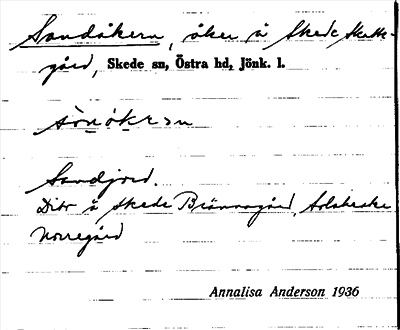 Sandåkern, åker å Skede Skatte-
gård, Skede sn, Östra hd, Jönk. l.
Sandjord.
Dito å Skede Brännagård,
Norregård
Annalisa Anderson 1936